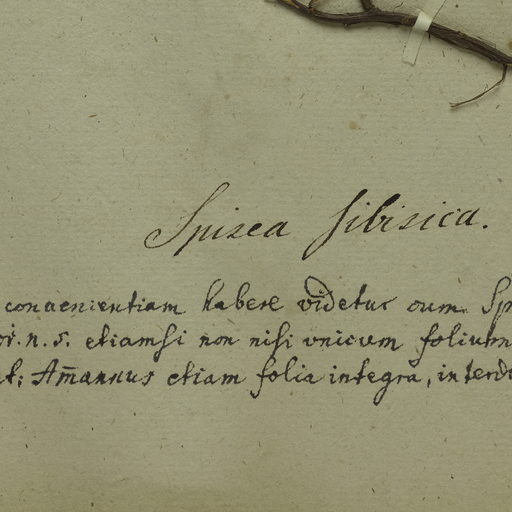 Spirea sibirica.
conuenientiam habere videtur cum Sp
or. n. 5. etiamsi non nisi vnicum folium
at; Am̄annus etiam folia integra, interdu